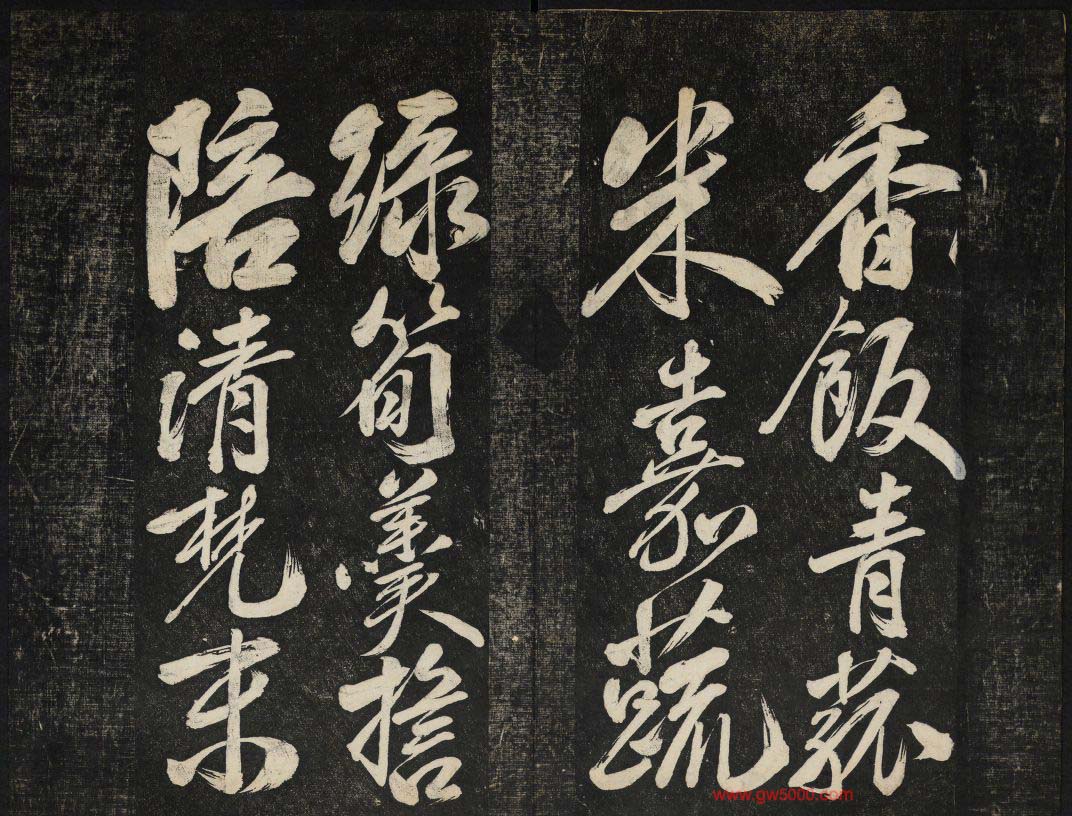 香飯青菰
米嘉蔬
綠筍羮捨
陪清梵末
www.gw5000.com